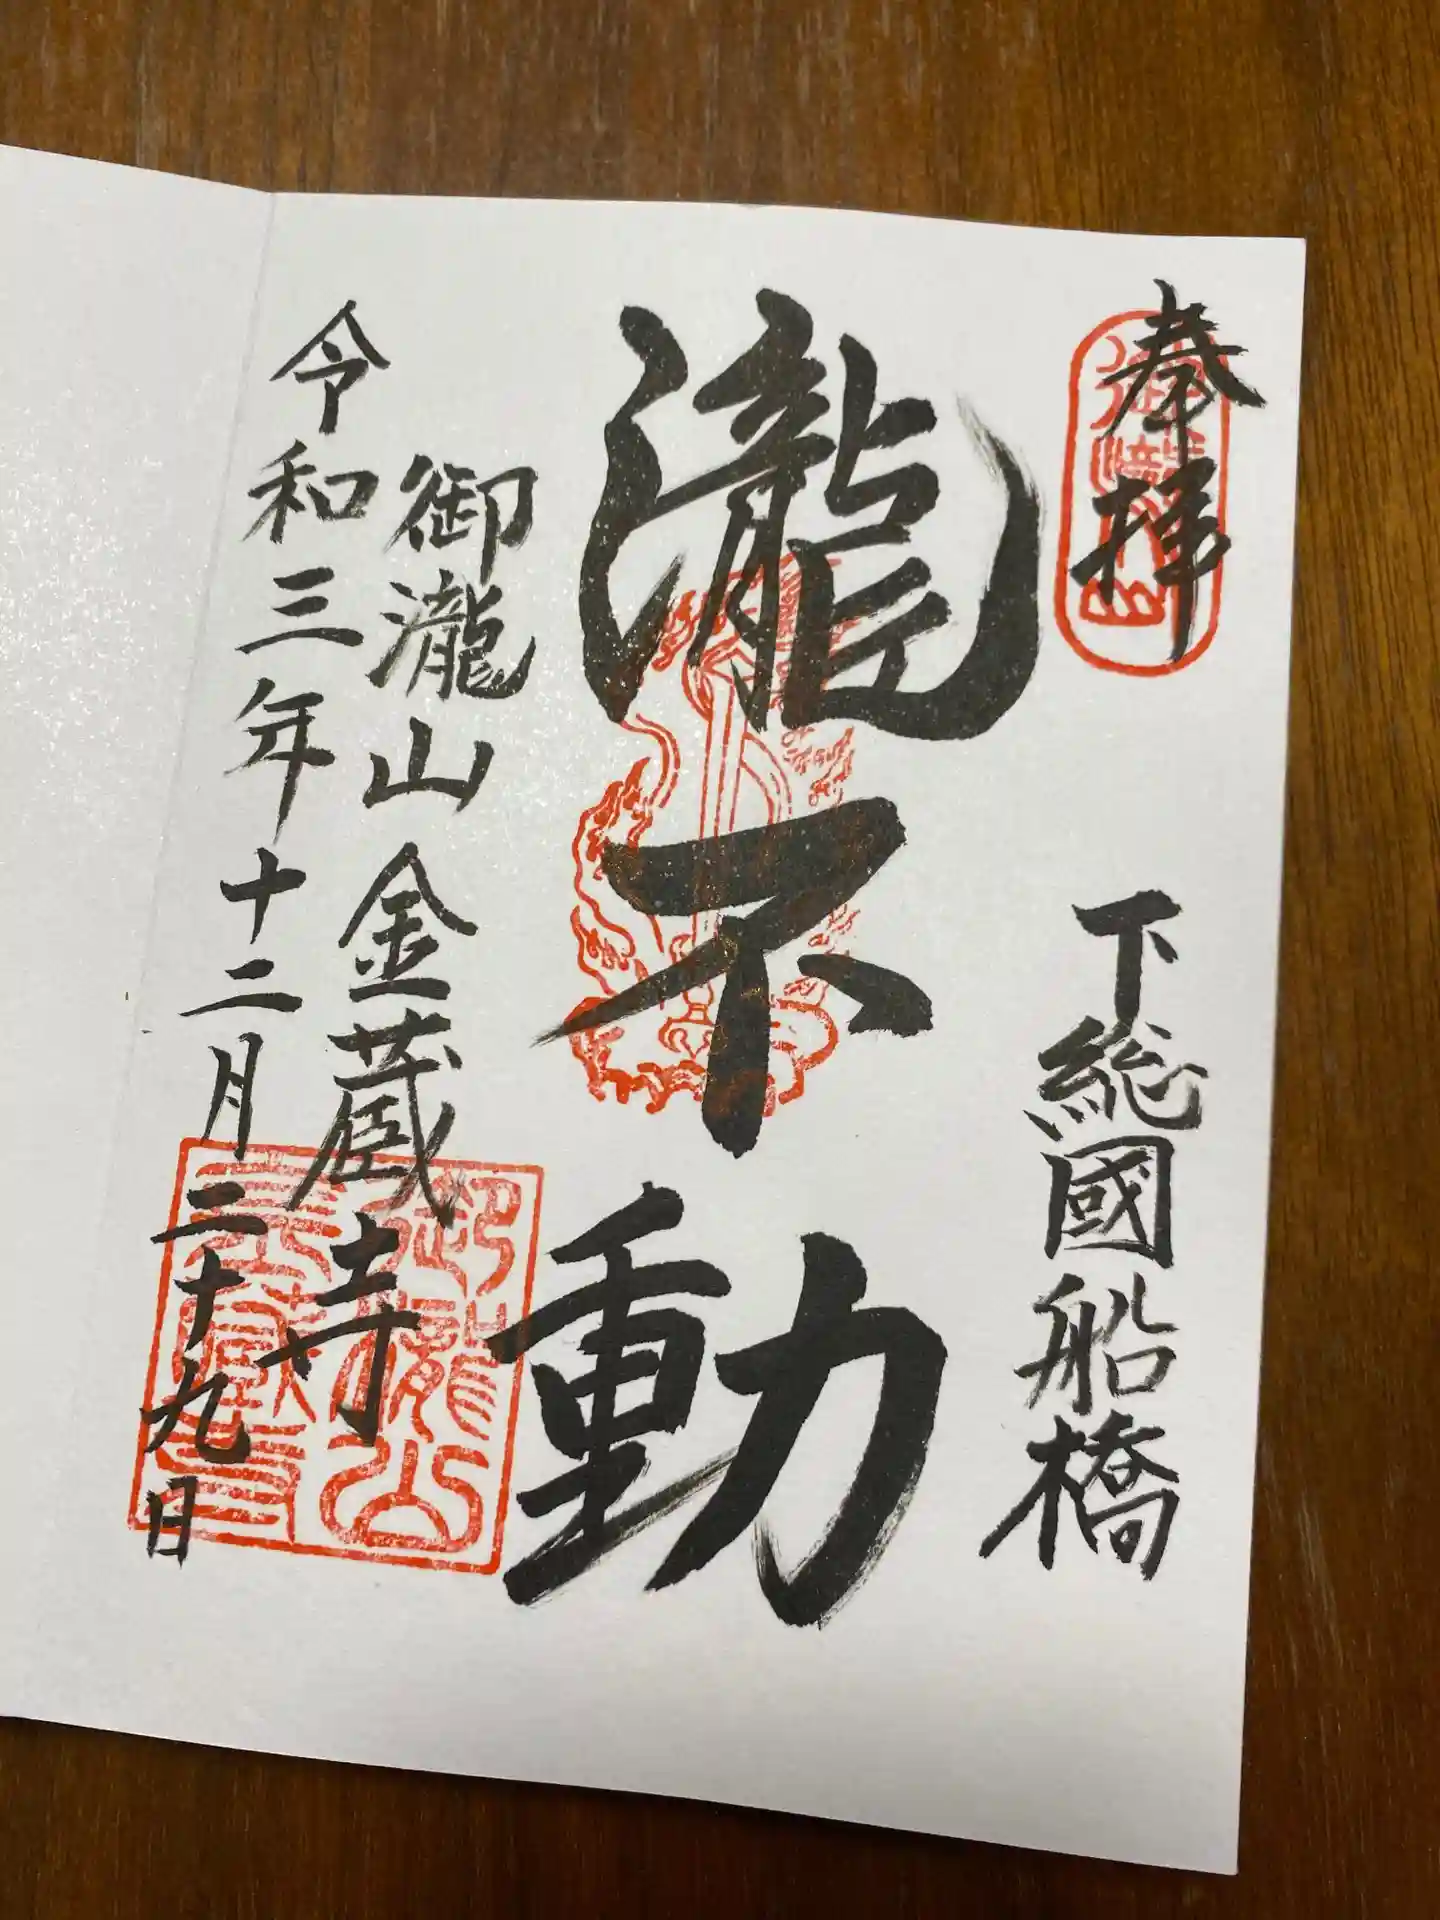 奉拝
下総國船橋
瀧不動
御瀧山金蔵寺
令和三年十二月二十九日
御瀧山
御瀧山
金蔵寺